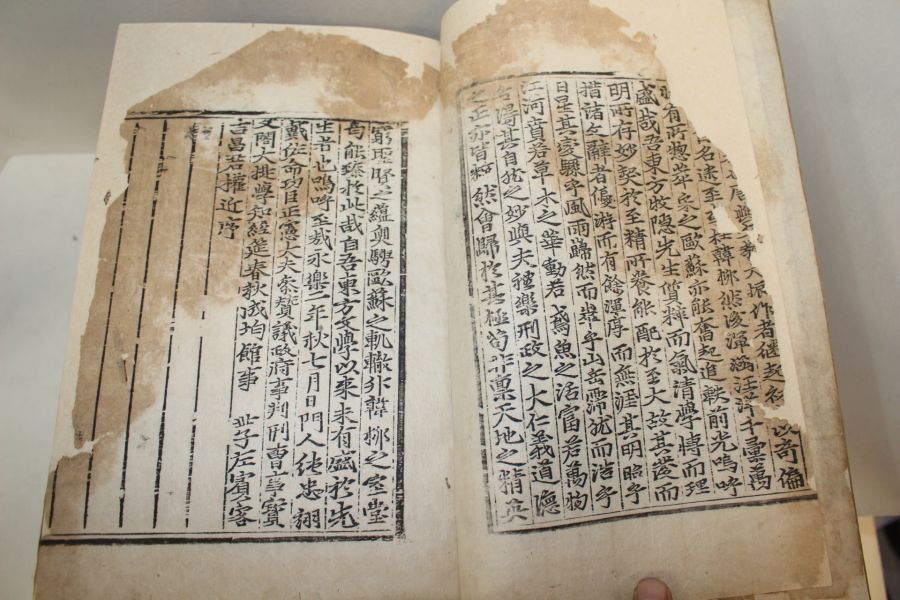 以奇偏
大振作者
名遂至 韓柳然後渾涵汪洋千彙萬
有所 宋之歐蘇亦能奮起追軼前光嗚呼
盛哉吾東方牧隱先生質粹而氣清學博而理
明所存妙契於至精所養能配於至大故其發而
措諸文辭者優游而有餘渾厚而無涯其明昭乎
日星其變驟乎風雨巋然而崒乎山岳霈然而浩乎
江河賁若草木之華動若鳶魚之活富若萬物
各得其自然之妙與夫禮樂刑政之大仁義道德
之正亦皆粹然會歸於其極苟非稟天地之精英
窮聖賢之蘊奧騁歐蘇之軌轍升韓柳之室堂
曷能臻於此哉自吾東方文學以來未有盛於先
生者也嗚呼至哉永樂二年秋七月日門人純忠翊
戴佐命功臣正憲大夫參贊議政府事判刑曹事寶
文閣大提學知經筵春秋成均館事 世子左賓客
吉昌君權近序